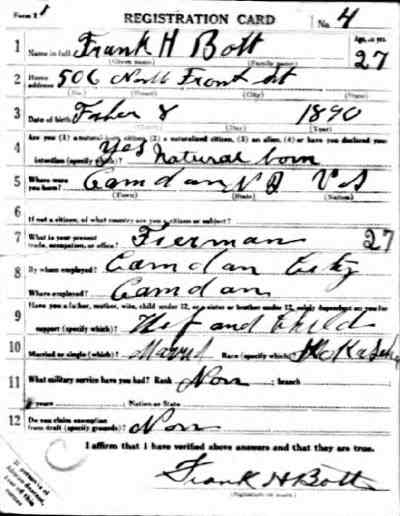 Form 1
REGISTRATION CARD No. 4
1 Name in full Frank H Bott Age, in yrs. 27
(Given name) (Family name)
2 Home address 506 North Front st
(No.) (Street) (City) (State)
3 Date of birth 8 1890
(Month) (Day) (Year)
4 Are you (1) a natural-born citizen, (2) a naturalized citizen, (3) an alien, (4) or have you declared your
intention (specify which)? yes Natural born
5 Where were you born? Camdan N J U S
(Town) (State) (Nation)
6 If not a citizen, of what country are you a citizen or subject?
7 What is your present trade, occupation, or office? Fierman 27
8 By whom employed? Camdan City
Where employed? Camdan
9 Have you a father, mother, wife, child under 12, or a sister or brother under 12, solely dependent on you for
support (specify which)? and Child
10 Married or single (which)? Race (specify which)?
11 What military service have you had? Rank Non ; branch
years ; Nation or State
12 Do you claim exemption from draft (specify grounds)? Non
I affirm that I have verified above answers and that they are true.
Frank H Bott
(Signature or mark)